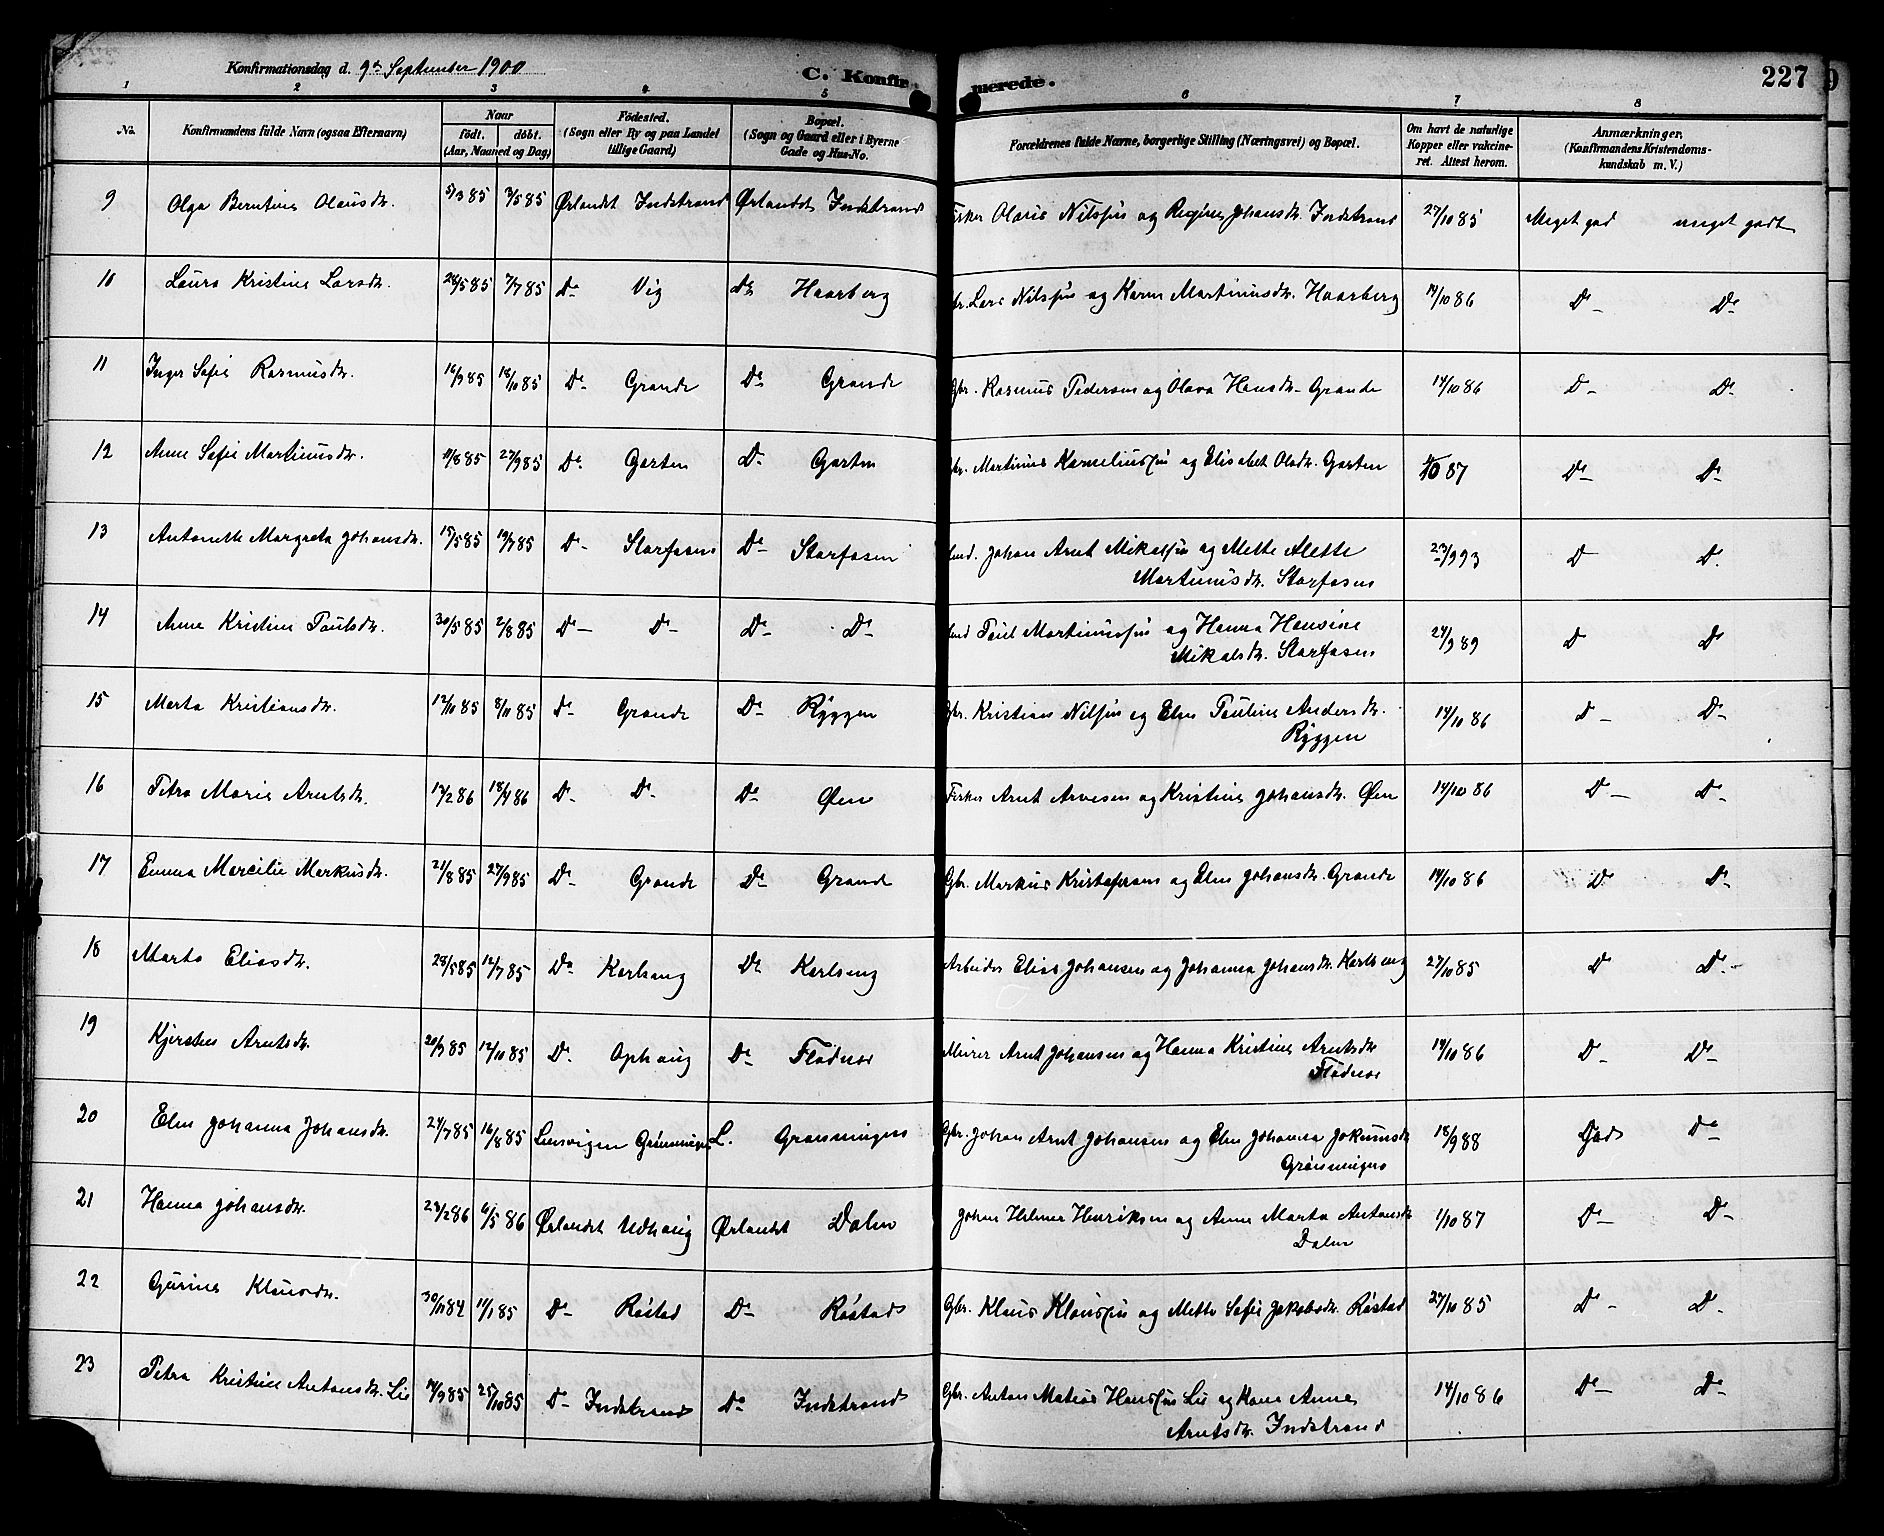 Konfirmationsdag d. 9de September 1900 C. Konfir merede. 227
1 2 3 4 5 6 7 8
No. Konfirmandens fulde Navn (ogsaa Efternavn) Naar født. døbt. (Aar, Maaned og Dag) Fødested. (Sogn eller By og paa Landet tillige Gaard) Bopæl. (Sogn og Gaard eller i Byerne Gade og Hus-No. Forældrenes fulde Navne, borgerlige Stilling (Næringsvei) og Bopæl. Om havt de naturlige Kopper eller vakcineret. Attest herom. Anmærkninger. (Konfirmandens Kristendomskundskab m. V.)
9 Olga Berntine Olausdtr. 5/3 85 3/5 85 Ørlandet Indstrand Ørlandet Indstrand Fisker Olaus Nilssen og Regine Johansdtr. Indstrand 27/10 85 Meget god meget godt
10 Laura Kristine Larsdtr. 24/5 85 7/7 85 Do Vig Do Haarberg Gbr. Lars Nilssen og Karen Martinusdtr. Haarberg 14/10 86 Do Do
11 Inger Sofie Rasmusdtr. 16/9 85 18/10 85 Do Grande Do Grande Gbr. Rasmus Pedersen og Olava Hansdtr. Grande 14/10 86 Do Do
12 Anne Sofie Martinusdtr. 11/8 85 27/9 85 Do Garten Do Garten Gbr. Martinus Korneliussen og Elisabet Olsdtr. Garten 87 Do Do
13 Antonette Margreta Johansdtr. 15/5 85 19/7 85 Do Storfosen Do Storfosen Johan Arnt Mikalsen og Mette Alette
Martinusdtr. Storfosen 23/9 93 Do Do
14 Anne Kristine Paulsdtr. 30/5 85 2/8 85 Do Do Do Do Paul Martinussen og Hanna Hansine
Mikalsdtr. Storfosen 24/9 89 Do Do
15 Marta Kristiansdtr. 12/10 85 8/11 85 Do Grande Do Ryggen Gbr. Kristian Nilssen og Elen Pauline Andersdtr.
Ryggen 14/10 86 Do Do
16 Petra Marie Arntsdtr. 12/2 86 18/4 86 Do Do Do Øien Fisker Arnt Arvesen og Kristine Johansdtr. Øien 14/10 86 Do Do
17 Emma Marcilie Markusdtr. 21/8 85 27/9 85 Do Grande Do Grande Gbr. Markus Kristofersen og Elen Johansdtr. Grande 14/10 86 Do Do
18 Marta Eliasdtr. 28/5 85 12/7 85 Do Karlseng Do Karlseng Arbeider Elias Johansen og Johanna Johansdtr. Karlseng 27/10 85 Do Do
19 Kjersten Arntsdtr. 20/9 85 12/10 85 Do Ophaug Do Flødnes Murer Arnt Johansen og Hanna Kristine Arntsdtr
14/10 86 Do Do
20 Elen Johanna Johansdtr. 24/7 85 16/8 85 Lensvigen Grønningen L. Grønningen Gbr. Johan Arnt Johansen og Elen Johanna Jokumsdtr
Grønningen 18/9 88 God Do
21 Hanna Johansdtr. 23/2 86 6/5 86 Ørlandet Udhaug Ørlandet Dalen Johan Hilmer Henriksen og Anne Marta Antonsdtr
Dalen 1/10 87 Do Do
22 Gurine Klausdtr. 30/11 84 11/1 85 Do Røstad Do Røstad Gbr. Klaus Klaussen og Mette Sofie Jakobsdtr. Røstad 27/10 85 Do Do
23 Petra Kristine Antonsdtr. Lie 14/9 85 25/10 85 Do Indstrand Do Indstrand Gbr. Anton Mateus Hanssen Lie og Kone Anne
Arntsdtr. Indstrand 14/10 86 Do Do